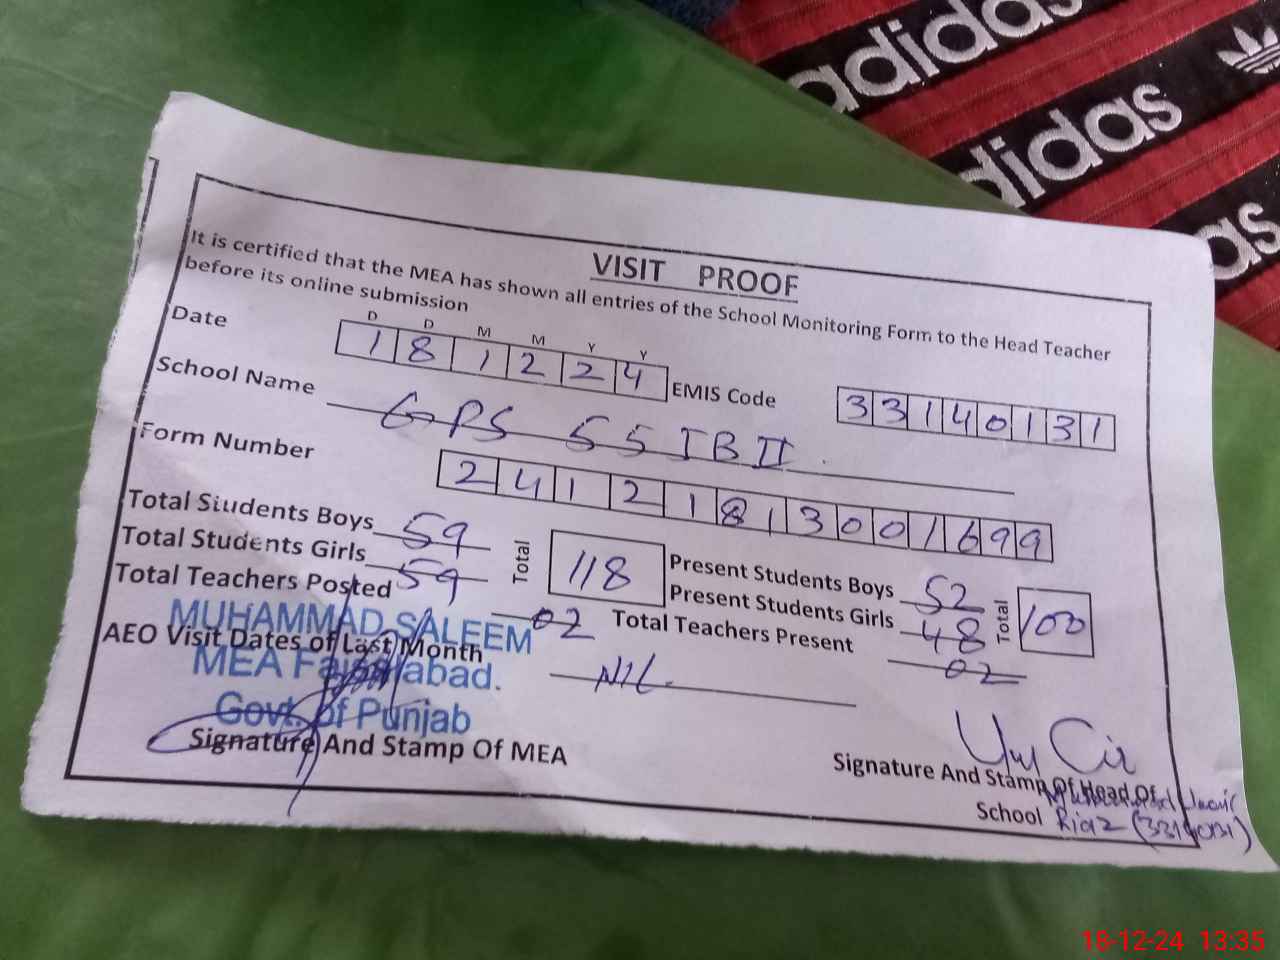 adidas
didas
as
VISIT PROOF
It is certified that the MEA has shown all entries of the School Monitoring Form to the Head Teacher
before its online submission
D D M M Y Y
Date 1 8 1 2 2 4 EMIS Code 3 3 1 4 0 1 3 1
School Name GPS 55 JB II
Form Number 2 4 1 2 1 8 1 3 0 0 1 6 9 9
Total Students Boys 59 Total 118 Present Students Boys 52 Total 100
Total Students Girls 59 Present Students Girls 48
Total Teachers Posted 02 Total Teachers Present 02
MUHAMMAD SALEEM
AEO Visit Dates of Last Month NIL
MEA Faisalabad.
Govt. of Punjab
Signature And Stamp Of MEA
Signature And Stamp Of Head Of
School
Riaz (33140131)
18-12-24 13:35